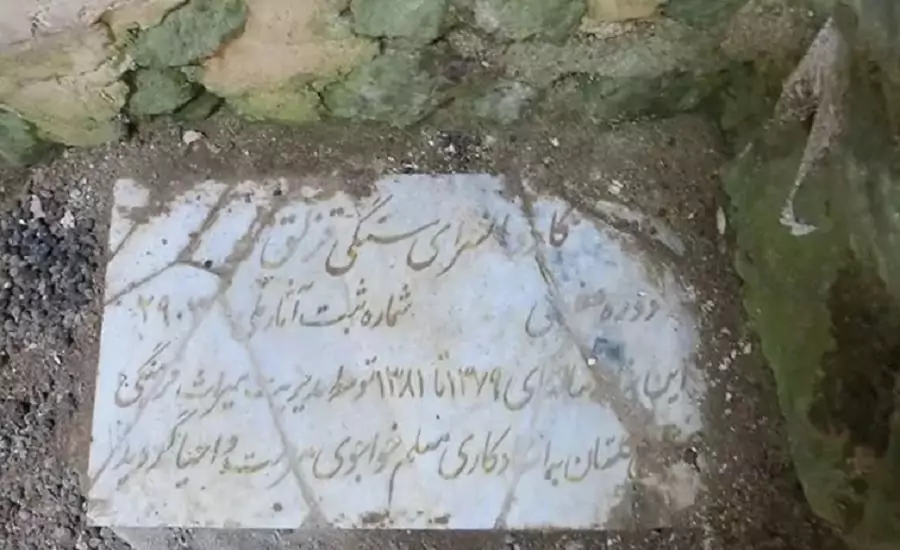 کاروانسرای سنگی قزلق
دوره شماره ثبت آثار ملی
این ۱۳۷۹ تا ۱۳۸۱ توسط مدیریت میراث فرهنگی
گلستان به استادکاری معلم خواجوی مرمت و احیا گردید